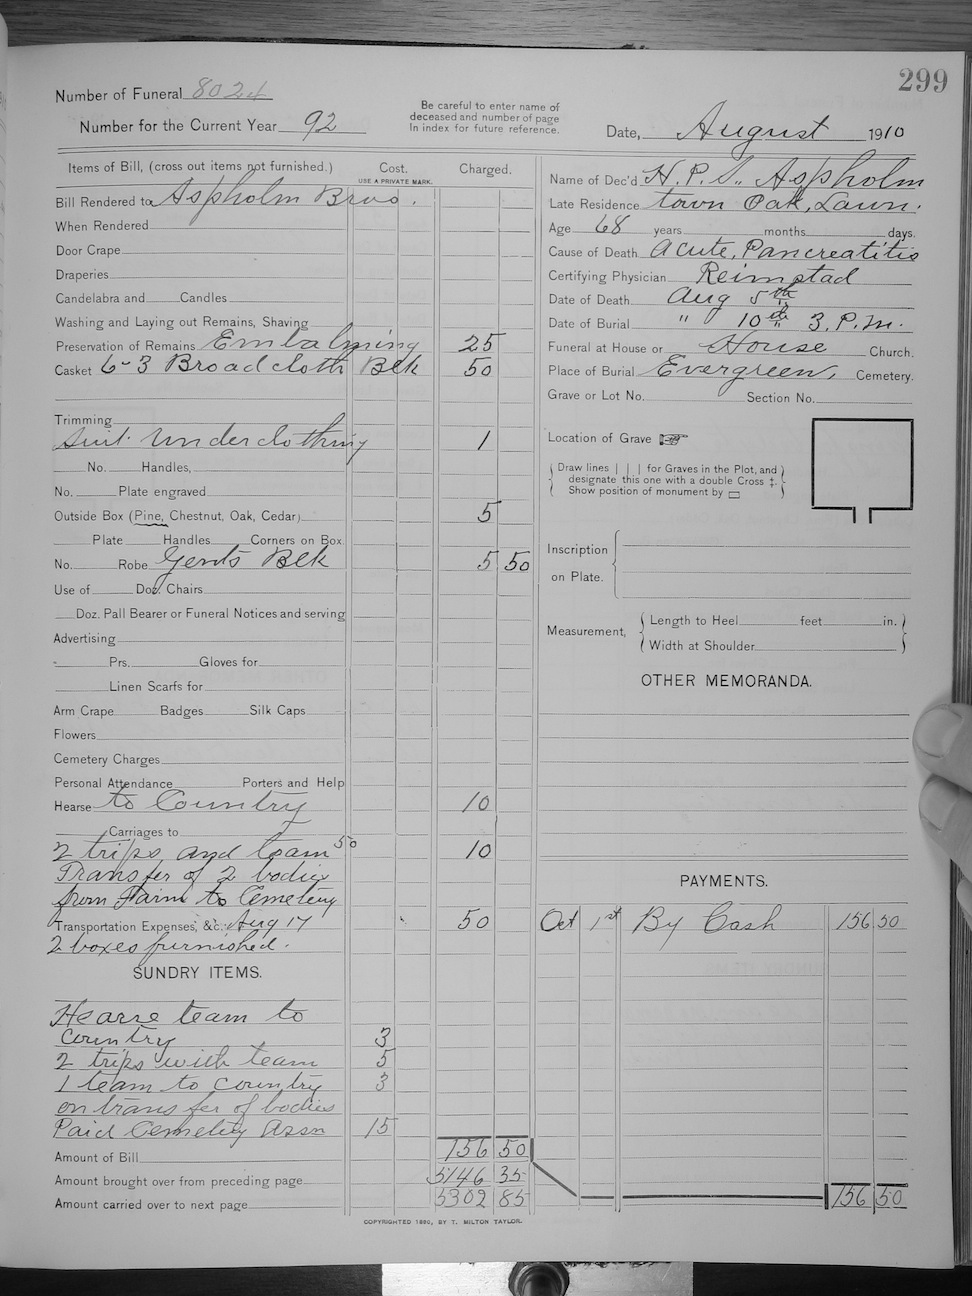 299
Number of Funeral 8024
Number for the Current Year 92
Be careful to enter name of
deceased and number of page
In index for future reference.
Date, August 1910
Items of Bill, (cross out items not furnished.) Cost. Charged.
USE A PRIVATE MARK.
Bill Rendered to Aspholm Bros.
When Rendered
Door Crape
Draperies
Candelabra and Candles
Washing and Laying out Remains, Shaving
Preservation of Remains Embalming 25
Casket 6-3 Broadcloth Blk 50
Trimming
Suit Underclothing 1
No. Handles,
No. Plate engraved
Outside Box (Pine, Chestnut, Oak, Cedar) 5
Plate Handles Corners on Box.
No. Robe Gents Blk 5 50
Use of Doz. Chairs
Doz. Pall Bearer or Funeral Notices and serving
Advertising
Prs. Gloves for
Linen Scarfs for
Arm Crape Badges Silk Caps
Flowers
Cemetery Charges
Personal Attendance Porters and Help
Hearse to Country 10
Carriages to
2 trips and team 50 10
Transfer of 2 bodies
from Farm to Cemetery
Transportation Expenses, &c. Aug 17 50
2 boxes furnished.
SUNDRY ITEMS.
Hearse team to
Country 3
2 trips with team 5
1 team to country 3
on transfer of bodies
Paid Cemetery Assn 15
Amount of Bill 156 50
Amount brought over from preceding page 5146 35
Amount carried over to next page 5302 85
COPYRIGHTED 1880, BY T. MILTON TAYLOR.
Name of Dec'd H. P. S. Aspholm
Late Residence town Oak, Lawn.
Age 68 years months days.
Cause of Death Acute, Pancreatitis
Certifying Physician Reimstad
Date of Death Aug 5th
Date of Burial " 10th 3. P.M.
Funeral at House or House Church.
Place of Burial Evergreen, Cemetery.
Grave or Lot No. Section No.
Location of Grave ☞
Draw lines | | | for Graves in the Plot, and
designate this one with a double Cross ‡.
Show position of monument by ▭
Inscription
on Plate.
Measurement,
Length to Heel feet in.
Width at Shoulder
OTHER MEMORANDA.
PAYMENTS.
Oct 1st By Cash 156 50
156 50